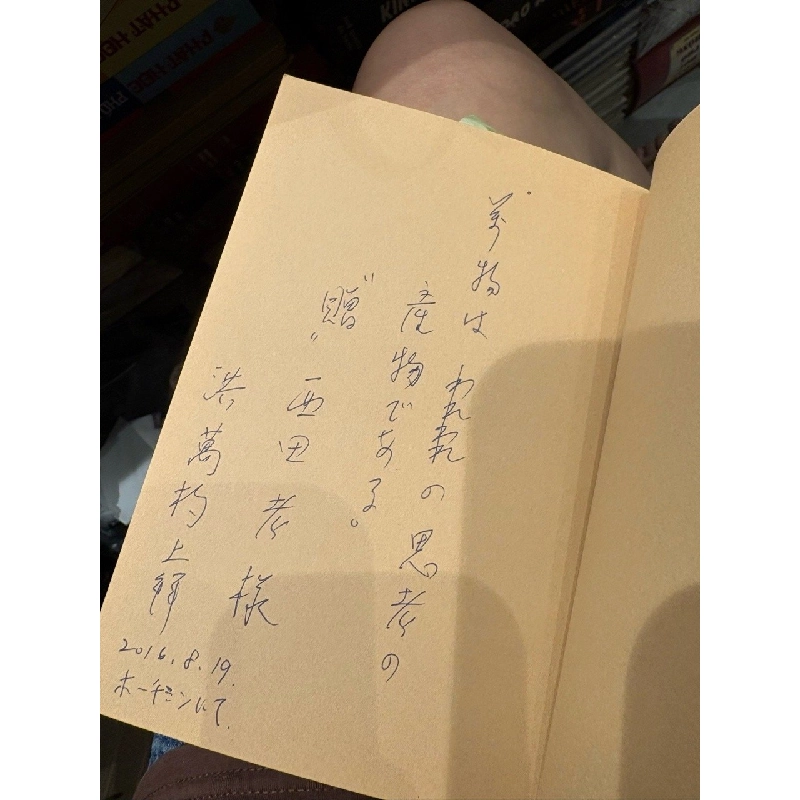 PHẬT HỌC
PHẬT HỌC
万物は われわれの思考の
産物である。
"贈"
西田考様
洪萬杓上
2016.8.19.
ホーチミンにて